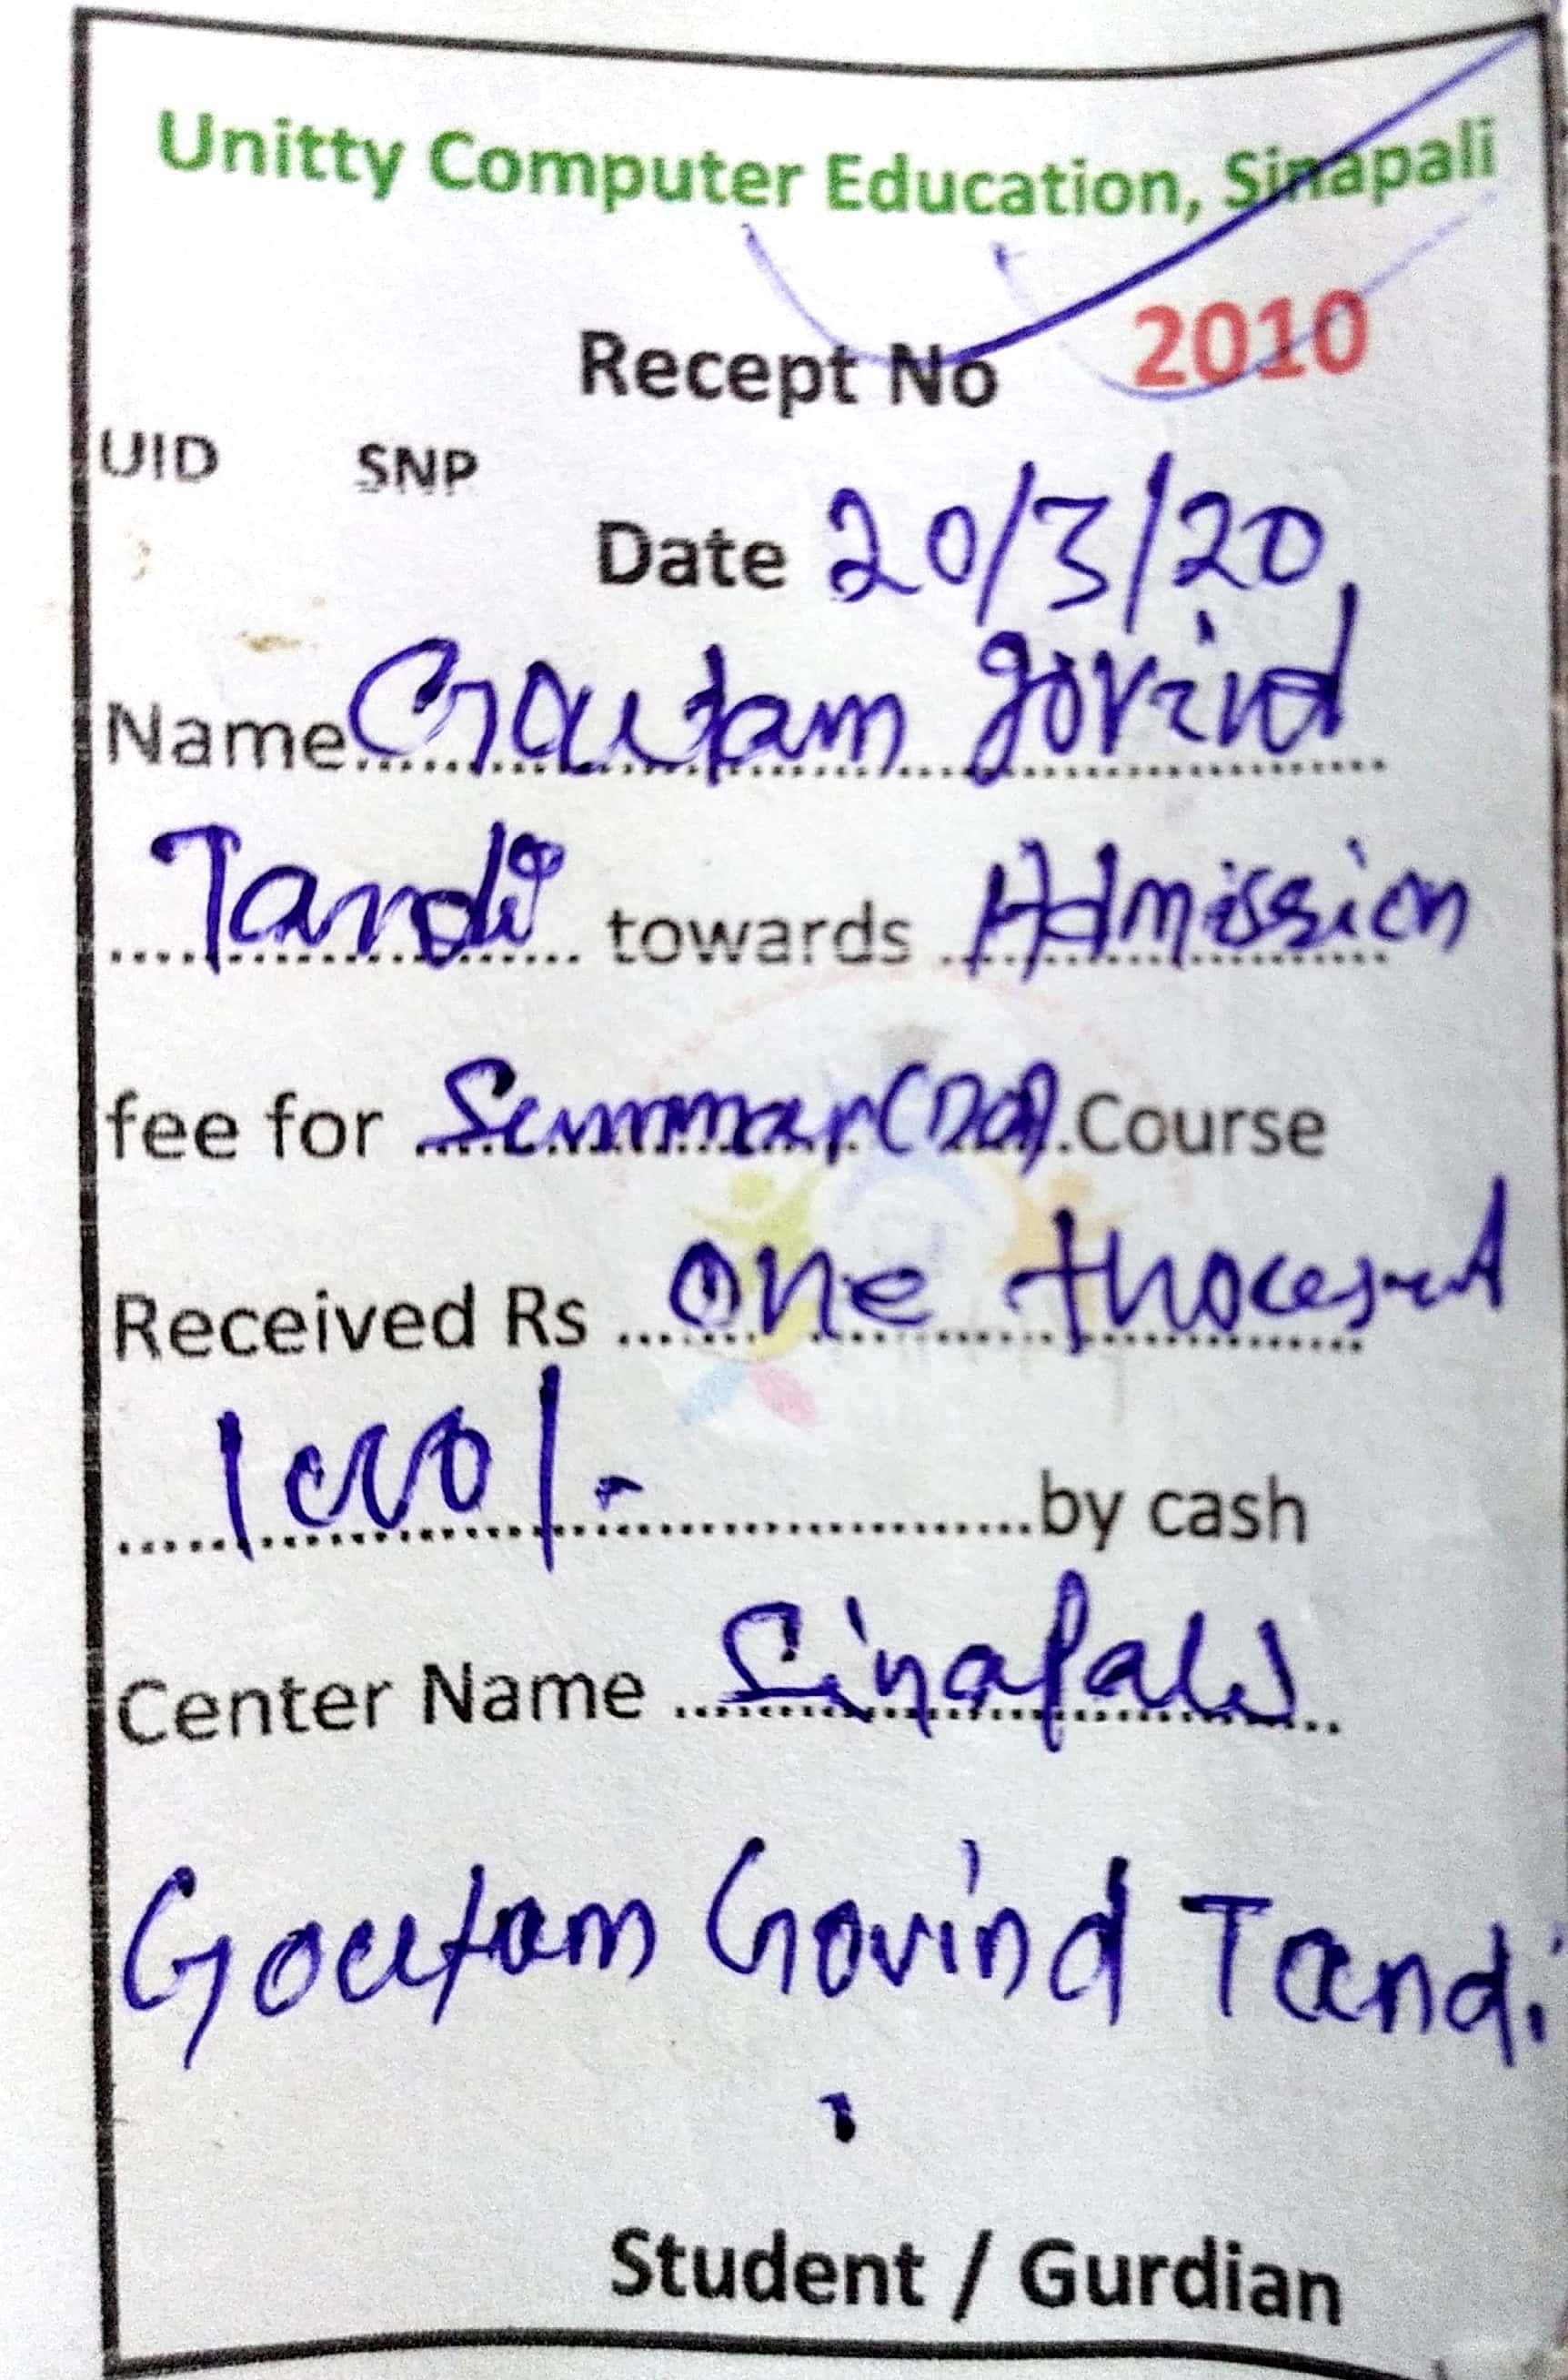 Unitty Computer Education, Sinapali
Recept No 2010
UID SNP
Date 20/3/20
Name Goutam Govind
Tandi towards Admission
fee for Summar Course
Received Rs One thousand
1000/- by cash
Center Name Sinapali
Goutam Govind Tandi
Student / Gurdian